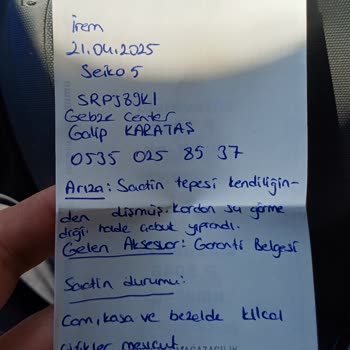 İrem
21.04.2025
Seiko 5
SRPJ89K1
Gebze Center
Galip KARATAŞ
0535 025 85 37
Arıza: Saatin tepesi kendiliğin-
den düşmüş. Kordon su görme
diği halde çabuk yıprandı.
Gelen Aksesuar: Garanti Belgesi
Saatin durumu:
Cam, kasa ve bezelde kılcal
çizikler mevcut.